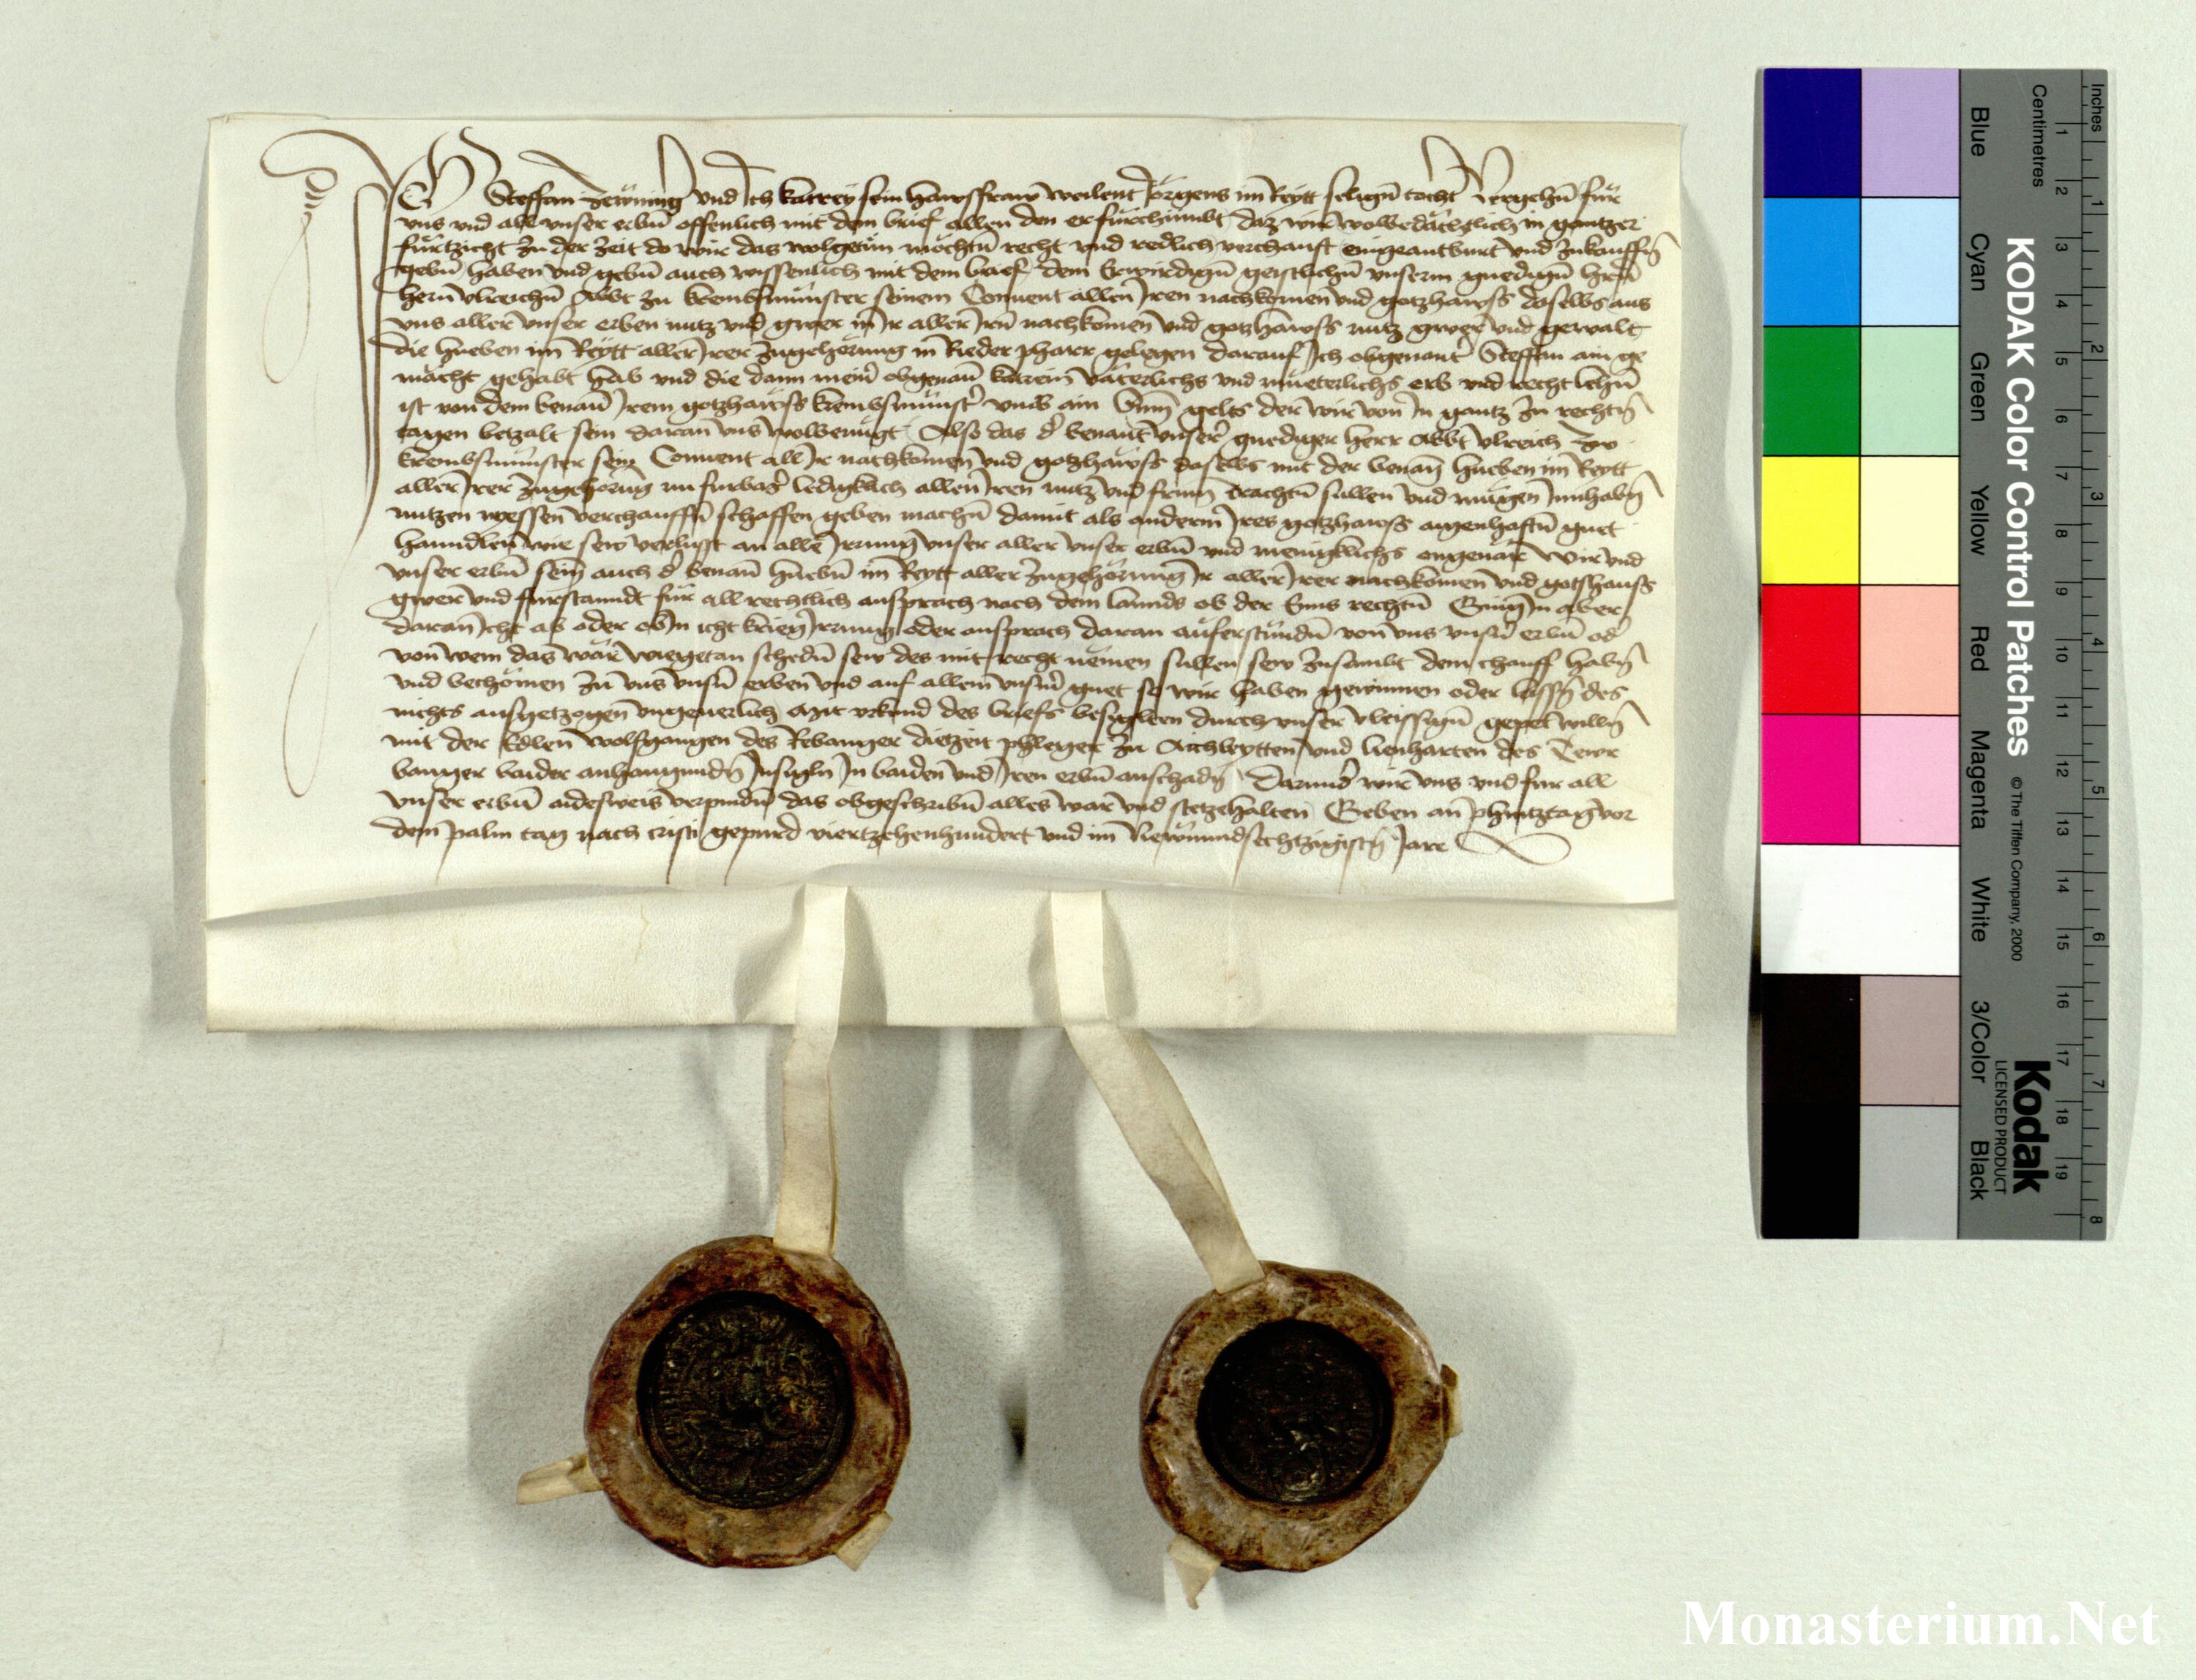 Ich Steffan Zewning und Ich katrey sein hawsfraw weilent Jörgens im Reytt selign̄ tocht Vergehn̄ für
vns vnd all vnser erbn̄ offenlich mit dem brief allen den er fürchumbt daz wir wolbedächtlich in gantzer
fürtzicht zu der zeit do wir das wolgetün möchtn̄ recht vnd redlich verchauft eingeantburt vnd zukauffn̄
gebn̄ haben vnd gebn̄ auch wissenlich mit dem brief dem Erwirdign̄ geistlichn̄ vnserm gnedign̄ hrn̄
hern̄ vlreichn̄ Abbt zu krembsmünster seinem Conuent allen Iren nachkomen vnd gotzhawss daselbs aus
vns aller vnser erben nutz vnd gwer in Ir aller Irn̄ nachkomen vnd gotzhawss nutz gwer vnd gewalt
die hueben im Reytt aller Irer zugehörung in Rieder pharr gelegen darauf Ich obgenant Steffan ain ge
mächt gehabt hab vnd die dann mein̄ obgenan̄ katrein väterlichs vnd müeterlichs erb vnd recht lehn̄
ist von dem benan̄ Irem gotzhawss krembsmünst vmb ain Sum̄ gelts der wir von In gantz zu rechtn̄
tagen betzalt sein daran vns wolbenügt Also das d benant vnser gnediger herr Abbt vlreich zw
krembsmünster sein Conuent all Ir nachkomen vnd gotzhawss daselbs mit der benan̄ hueben im Reytt
aller Irer zugehorūg nu furbas ledigklich allen Iren nutz vnd frum̄ trachtn̄ sullen vnd mugen Innhabn̄
nutzen nyessen verchauffn̄ schaffen geben machn̄ damit als anderm Ires gotzhawss aigenhaftn̄ guet
hanndlen wie sew verlusst an alle Irrung vnser aller vnser erbn̄ vnd menigklichs ongeuär Wir vnd
vnser erbn̄ sein auch d benan̄ huebn̄ im Reytt aller zugehörung Ir aller Irer nachkomen vnd gotshauss
gwer vnd fürstanndt für all rechtlich ansprach nach dem lannds ob der Enns rechtn̄ Gieng In aber
daran Icht ab oder ob In icht krieg Irrung oder ansprach daran auferstundn̄ von vns vnsn̄ erbn̄ od
von wem das wär wiegetan schedn̄ sew des mit recht nemen sullen sew zusambt dem chauff habn̄
vnd bechömen zu vns vnsn̄ erben vnd auf allem vnsm̄ guet so wir haben gewinnen oder lassn̄ des
nichts ausgetzogen vngeuerlich Mit vrkund des briefs besigelten durch vnser vleissign̄ gepet willn̄
mit der Edlen Wolfgangen des Rebanger dietzeit phleger zu Aichleytten vnd lienharten des Tewr
banger baider anhangundn̄ Insigln̄ In baiden vnd Iren erbn̄ anschadn̄ Darund wir vns vnd fur all
vnser erbn̄ aidesweis verpindn̄ das obgeschribn̄ alles war vnd stetzehalten Geben an phintztag vor
dem palm tag nach cristi gepurd viertzehenhundert vnd im Newnundsechtzigistn̄ Jare
Inches
Centimetres
1 2 3 4 5 6 7 8 9 10 11 12 13 14 15 16 17 18 19
1 2 3 4 5 6 7 8
KODAK Color Control Patches © The Tiffen Company, 2000
Kodak
LICENSED PRODUCT
Blue Cyan Green Yellow Red Magenta White 3/Color Black
Monasterium.Net